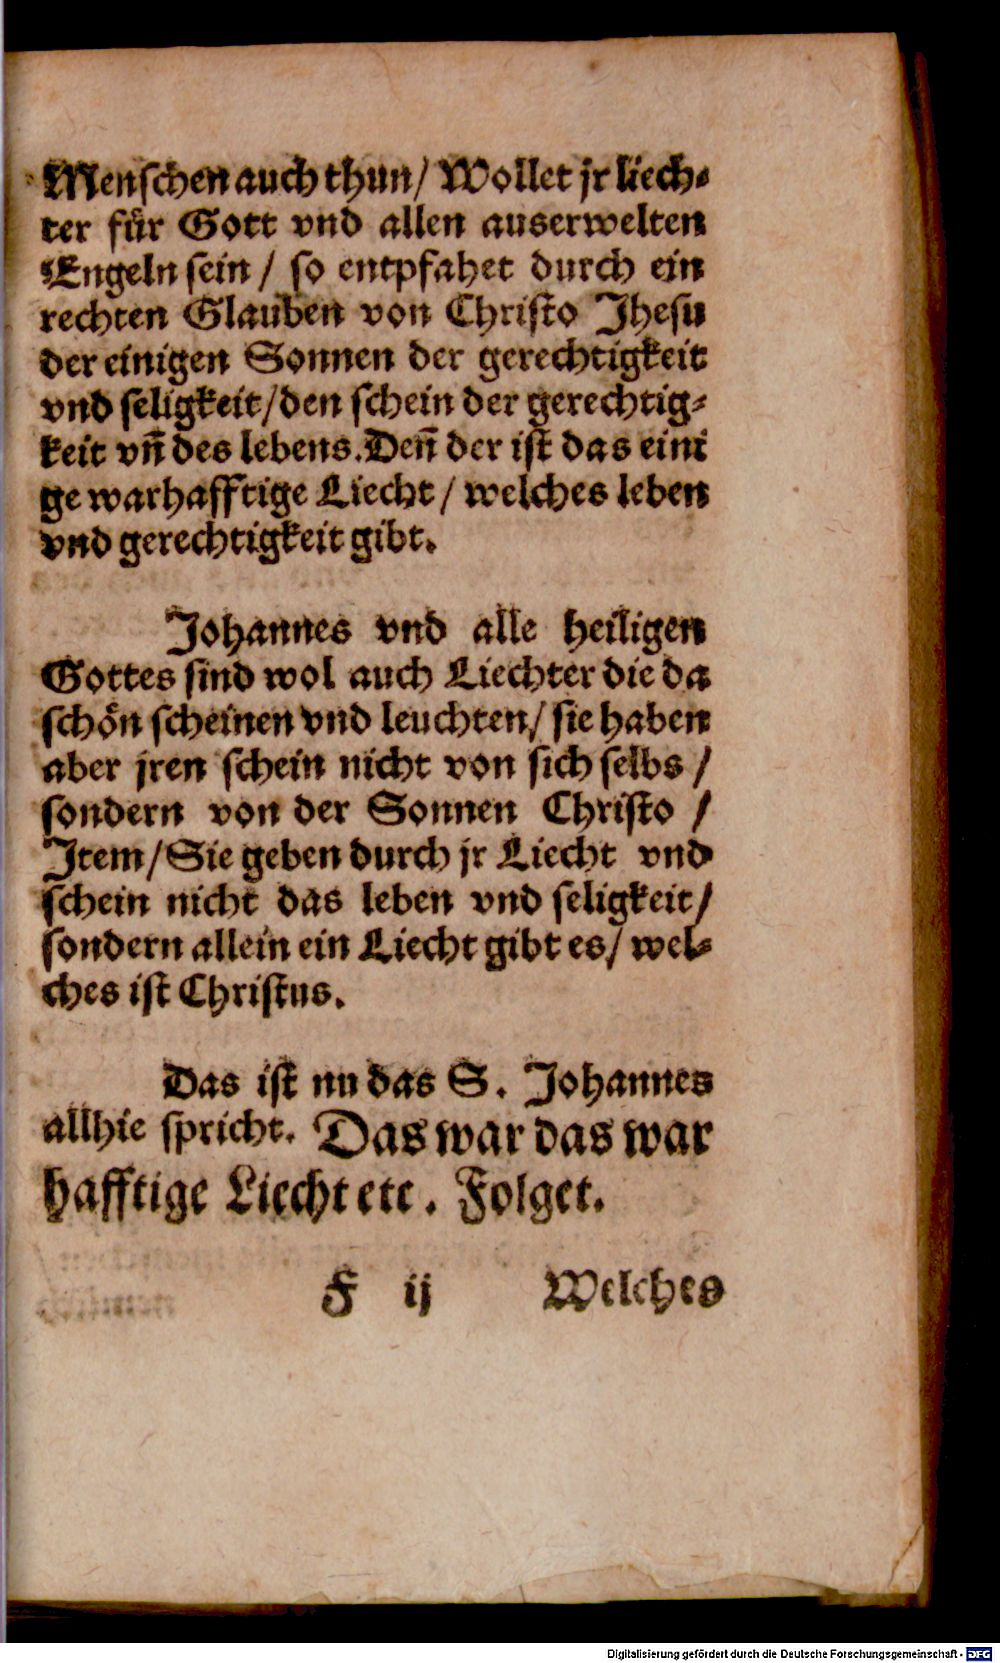 Menschen auch thun / Wollet jr liech⸗
ter für Gott vnd allen auserwelten
Engeln sein / so entpfahet durch ein
rechten Glauben von Christo Jhesu
der einigen Sonnen der gerechtigkeit
vnd seligkeit / den schein der gerechtig⸗
keit vn̄ des lebens. Den̄ der ist das eini
ge warhafftige Liecht / welches leben
vnd gerechtigkeit gibt.
Johannes vnd alle heiligen
Gottes sind wol auch Liechter die da
schön scheinen vnd leuchten / sie haben
aber jren schein nicht von sich selbs /
sondern von der Sonnen Christo /
Item / Sie geben durch jr Liecht vnd
schein nicht das leben vnd seligkeit /
sondern allein ein Liecht gibt es / wel⸗
ches ist Christus.
Das ist nu das S. Johannes
allhie spricht. Das war das war
hafftige Liecht etc. Folget.
F ij Welches
Digitalisierung gefördert durch die Deutsche Forschungsgemeinschaft - DFG